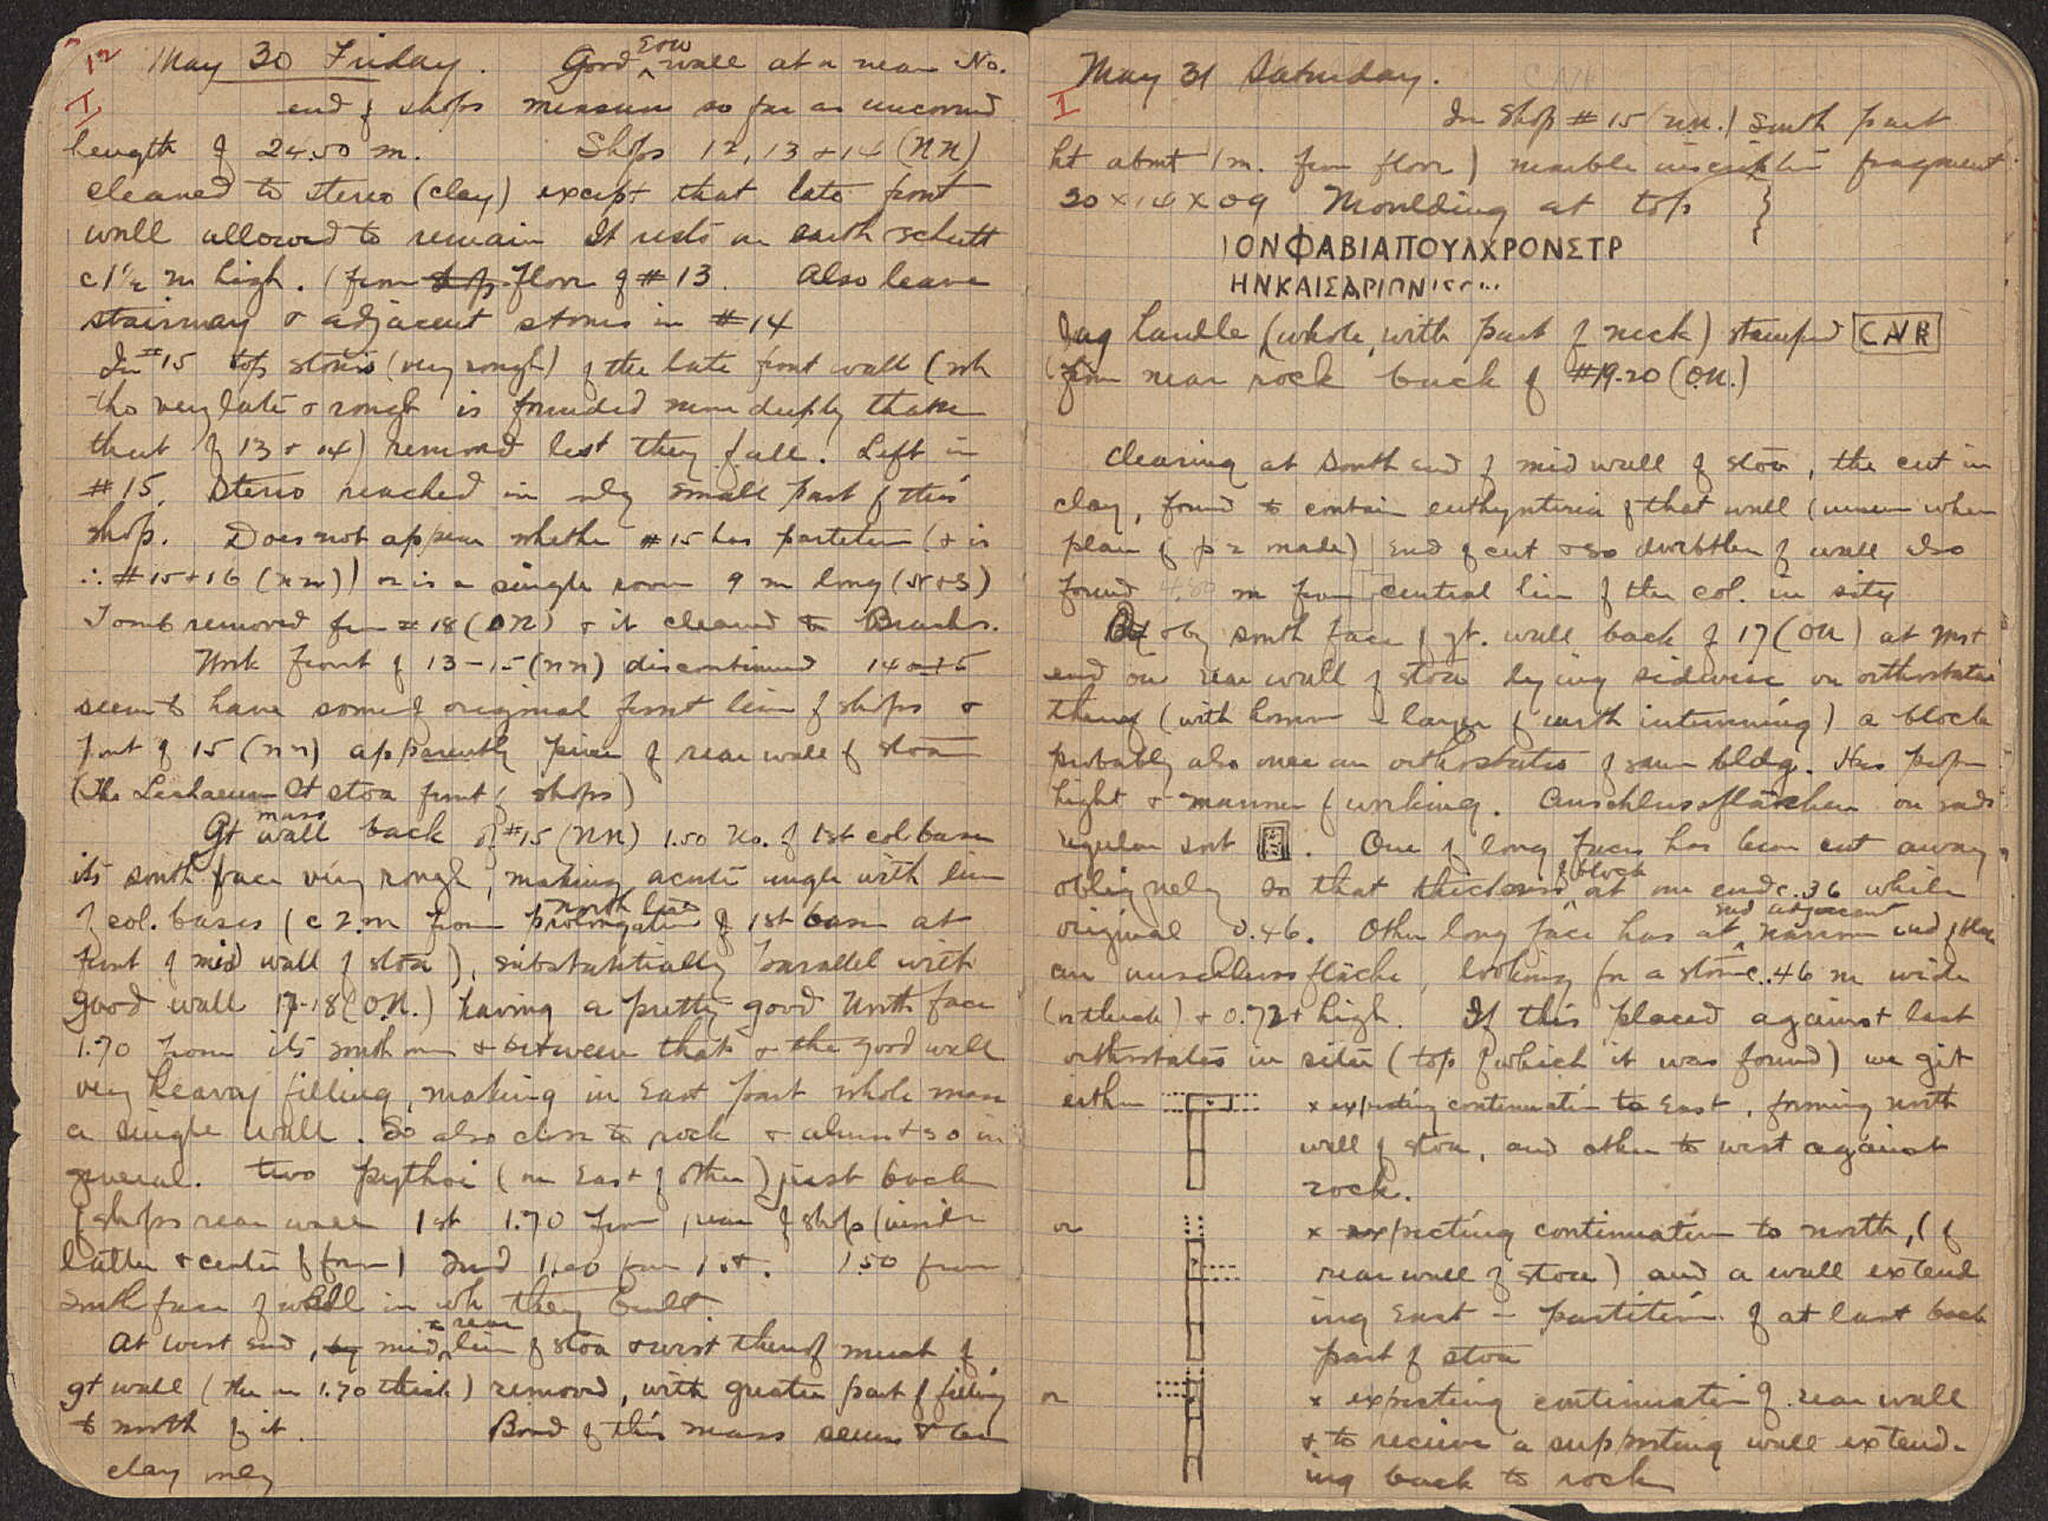 12 May 30 Friday. Good E→W wall at or near No.
I end of shops measures so far as uncovered
length of 24.50 m. Shops 12, 13 + 14 (NN)
cleaned to stereo (clay) except that late front
wall allowed to remain It rests on earth schutt
c 1½ m high. (from shop floor of #13. Also leave
stairway & adjacent stones in #14
In #15 top stones (very rough) of the late front wall (wh
tho very late & rough is founded more deeply than
that of 13 + 14) removed lest they fall. Left in
#15. Stereo reached in only small part of this
shop. Does not appear whether #15 has partition (& is
∴ #15+16 (NN)) or is a single room 9 m long (N+S)
Tomb removed from #18 (ON) & it cleaned to
Work front of 13-15 (NN) discontinued 14 or 15
seem to have some of original front line of shops &
front of 15 (NN) apparently piece of rear wall of stoa
(The Lechaeum St stoa front of shops)
Gt mass wall back of #15 (NN) 1.50 No. of 1st col base
its south face very rough, making acute angle with line
of col. bases (c 2 m from prolongation north line of 1st base at
front of mid wall of stoa), substantially parallel with
good wall 17-18 (O.N.) having a pretty good North face
1.70 from its south one & between that & the good wall
very heavy filling, making in East part whole mass
a single wall. So also close to rock & almost so in
general. Two pythoi (one East of other) just back
of shops rear wall 1st 1.70 from rear of shop (inside
latter & center of form) 2nd 1.00 from 1st. 1.50 from
south face of wall in wh they built
At west end, by mid & rear line of stoa & west thereof most of
gt wall (the one 1.70 thick) removed, with greater part of filling
to north of it. Bond of this mass seems to be
clay only
May 31 Saturday.
I In Shop #15 (NN.) South part
ht about 1 m. from floor) marble inscription fragment
20 × 14 × 09 Moulding at top
ΙΟΝΦΑΒΙΑΠΟΥΛΧΡΟΝΣΤΡ
ΗΝΚΑΙΣΑΡΙΩΝ
Jug handle (whole, with part of neck) stamped CNR
(from near rock back of #19-20 (O.N.)
Clearing at South end of mid wall of stoa, the cut in
clay, found to contain euthynteria of that wall (unseen when
plan of p 2 made) End of cut & so doubtless of wall also
found 4.80 m from central line of the col. in situ
& by south face of gt. wall back of 17 (ON) at most
end on rear wall of stoa lying sidewise on orthostates
thereof (with however a layer of earth intervening) a block
probably also once an orthostates of same bldg. Has proper
hight & manner of working. Anschlussflächen on ends
regular sort. One of long faces has been cut away
obliquely so that thickness of block at one end c. 36 while
original 0.46. Other long face has at end adjacent narrow end of
an anschlussfläche, looking for a stone c. .46 m wide
(or thick) & 0.72+ high. If this placed against last
orthostates in situ (top of which it was found) we get
either × expecting continuation to East, forming north
wall of stoa, and other to west against
rock.
or × expecting continuation to north, (of
rear wall of stoa) and a wall extend
ing East – partition of at least back
part of stoa
or × expecting continuation of rear wall
& to receive a supporting wall extend-
ing back to rock